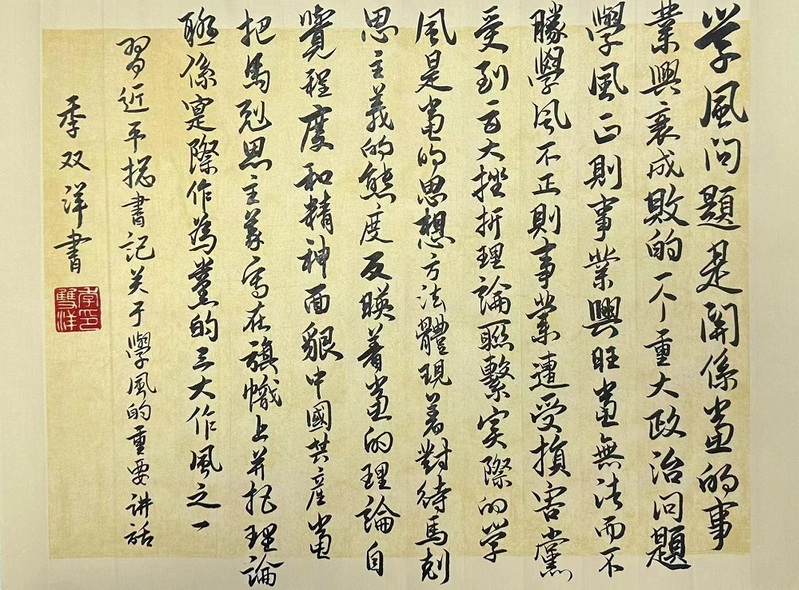 学風问題是関係党的事
業興衰成敗的一个重大政治问題
學風正則事業興旺党無往而不
勝學风不正則事業遭受損害黨
受到大挫折理論聯繫实際的学
風是党的思想方法體現着對待馬剋
思主義的態度反映着党的理論自
覺程度和精神面貌中國共產党
把馬剋思主義寫在旗幟上并把理論
聯係寔際作為黨的三大作風之一
習近平捴書記关于學風的重要讲話
季双洋書
季印雙洋